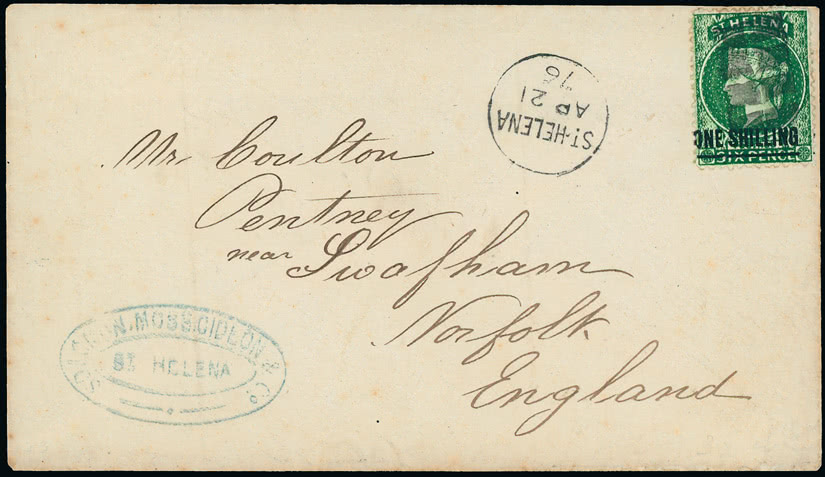 ST HELENA
ONE SHILLING
SIX PENCE
ST. HELENA
AP 21
76
Mr Coulton
Pentney
near Swafham
Norfolk
England
SOLOMON. MOSS. GIDEON & Co
ST HELENA